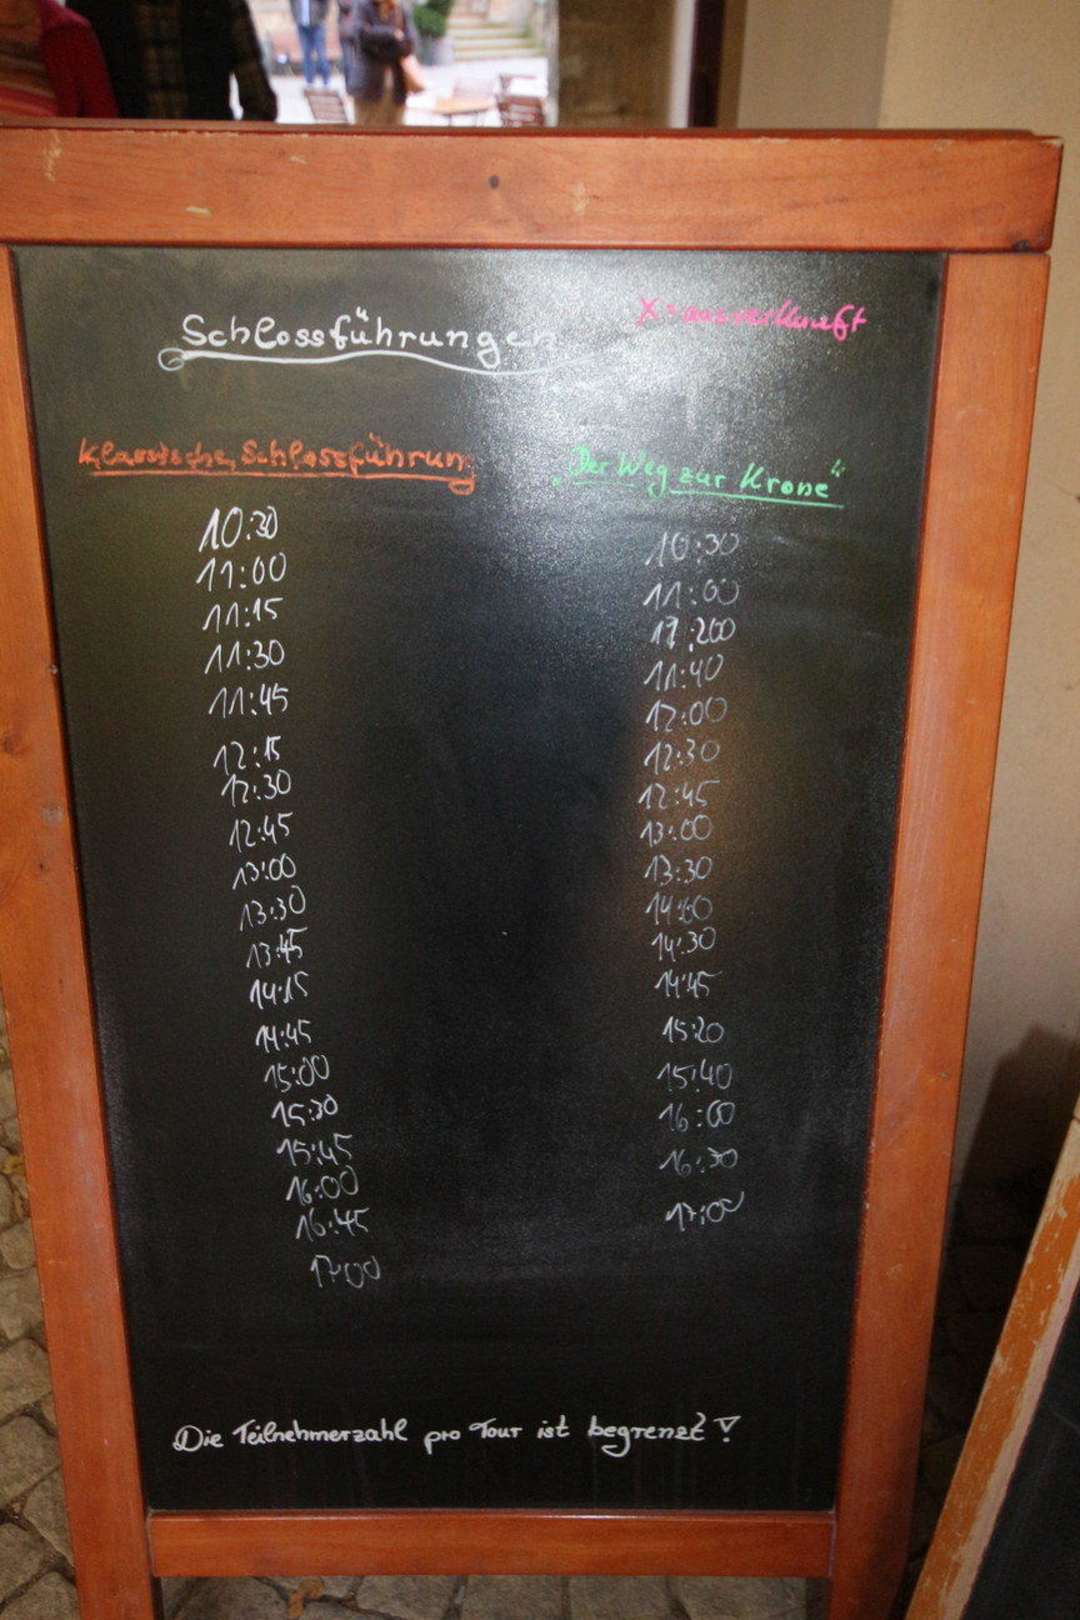 Schlossführungen
X = ausverkauft
Klassische Schlossführung
10:30
11:00
11:15
11:30
11:45
12:15
12:30
12:45
13:00
13:30
13:45
14:15
14:45
15:00
15:30
15:45
16:00
16:45
17:00
„Der Weg zur Krone“
10:30
11:00
11:40
12:00
12:30
12:45
13:00
13:30
14:00
14:30
14:45
15:20
15:40
16:00
16:30
17:00
Die Teilnehmerzahl pro Tour ist begrenzt!